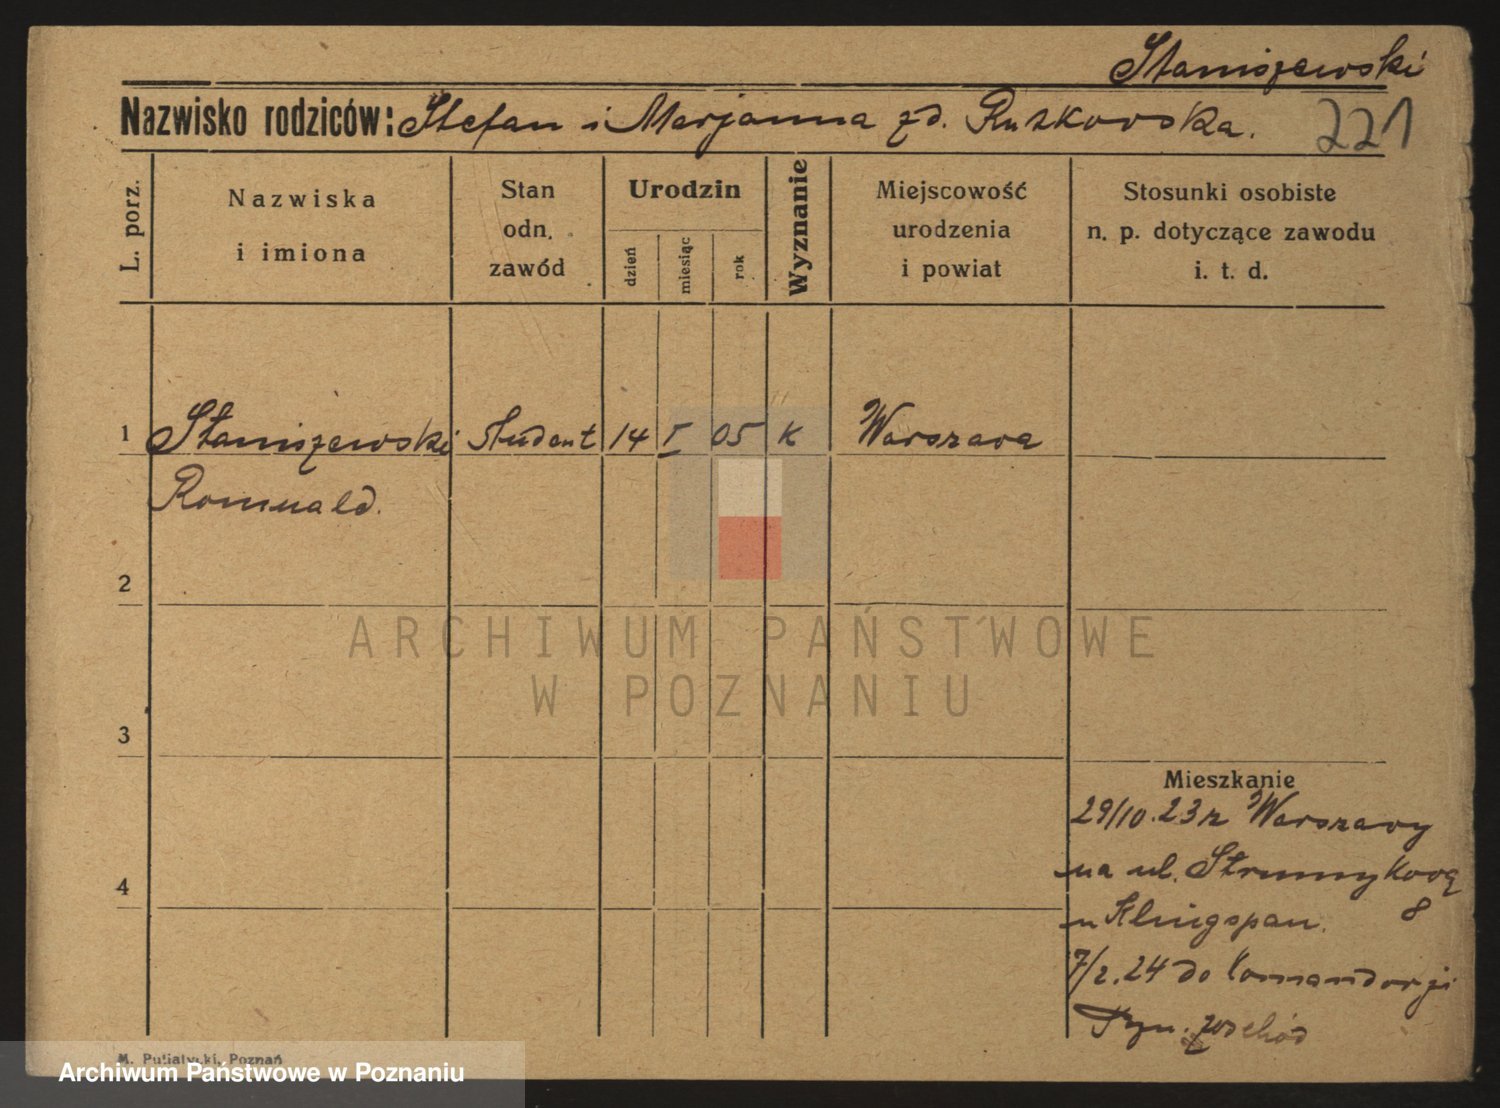 Staniszewski
Nazwisko rodziców: Stefan i Marjanna zd. Ruszkowska.
221
L. porz.
Nazwiska
i imiona
Stan
odn.
zawód
Urodzin
dzień
miesiąc
rok
Wyznanie
Miejscowość
urodzenia
i powiat
Stosunki osobiste
n. p. dotyczące zawodu
i. t. d.
1 Staniszewski student 14 I 05 K Warszawa
Romuald.
2
ARCHIWUM PAŃSTWOWE
W POZNANIU
3
Mieszkanie
29/10.23 z Warszawy
na ul. Strumykową
8
u Klingspan.
4
7/2.24 do Komandorji
Pzn. wschód
M. Putiatycki, Poznań
Archiwum Państwowe w Poznaniu